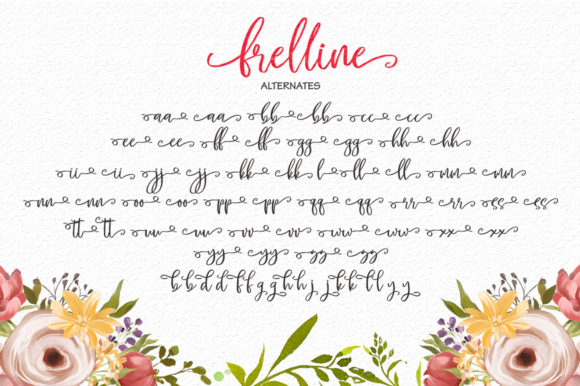 frelline
ALTERNATES
aa aa bb bb cc cc
ee ee ff ff gg gg hh hh
ii ii jj jj kk kk ll ll mm mm
nn nn oo oo pp pp qq qq rr rr ss ss
tt tt uu uu vv vv ww ww xx xx
yy yy zz zz
bbddffgghhjjkkllyy